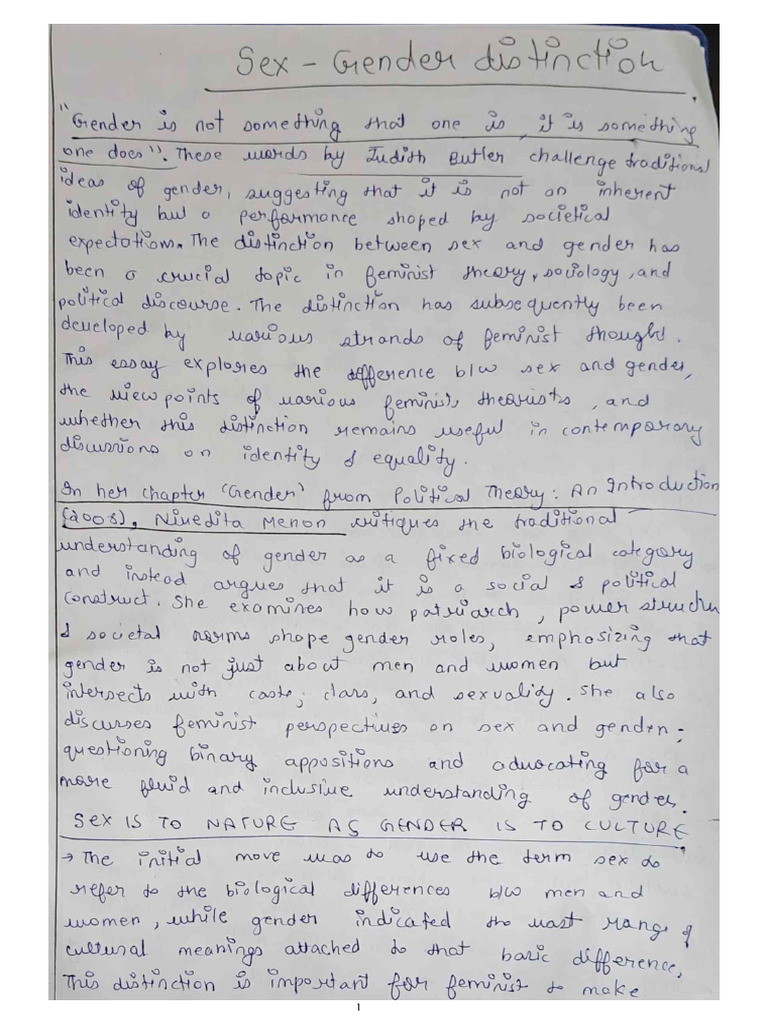 Sex - Gender distinction
"Gender is not something that one is, it is something
one does". These words by Judith Butler challenge traditional
ideas of gender, suggesting that it is not an inherent
identity but a performance shaped by societical
expectations. The distinction between sex and gender has
been a crucial topic in feminist theory, sociology, and
political discourse. The distinction has subsequently been
developed by various strands of feminist thought.
This essay explores the difference b/w sex and gender,
the viewpoints of various feminist theorists, and
whether this distinction remains useful in contemporary
discussions on identity & equality.
In her chapter 'Gender' from Political Theory: An Introduction
(2008), Nivedita Menon critiques the traditional
understanding of gender as a fixed biological category
and instead argues that it is a social & political
construct. She examines how patriarch, power structur
& societal norms shape gender roles, emphasizing that
gender is not just about men and women but
intersects with caste, class, and sexuality. She also
discusses feminist perspectives on sex and gender,
questioning binary appositions and advocating for a
more fluid and inclusive understanding of gender.
SEX IS TO NATURE AS GENDER IS TO CULTURE
→ The initial move was to use the term sex to
refer to the biological differences b/w men and
women, while gender indicated the vast range of
cultural meanings attached to that basic difference.
This distinction is important for feminist to make
1